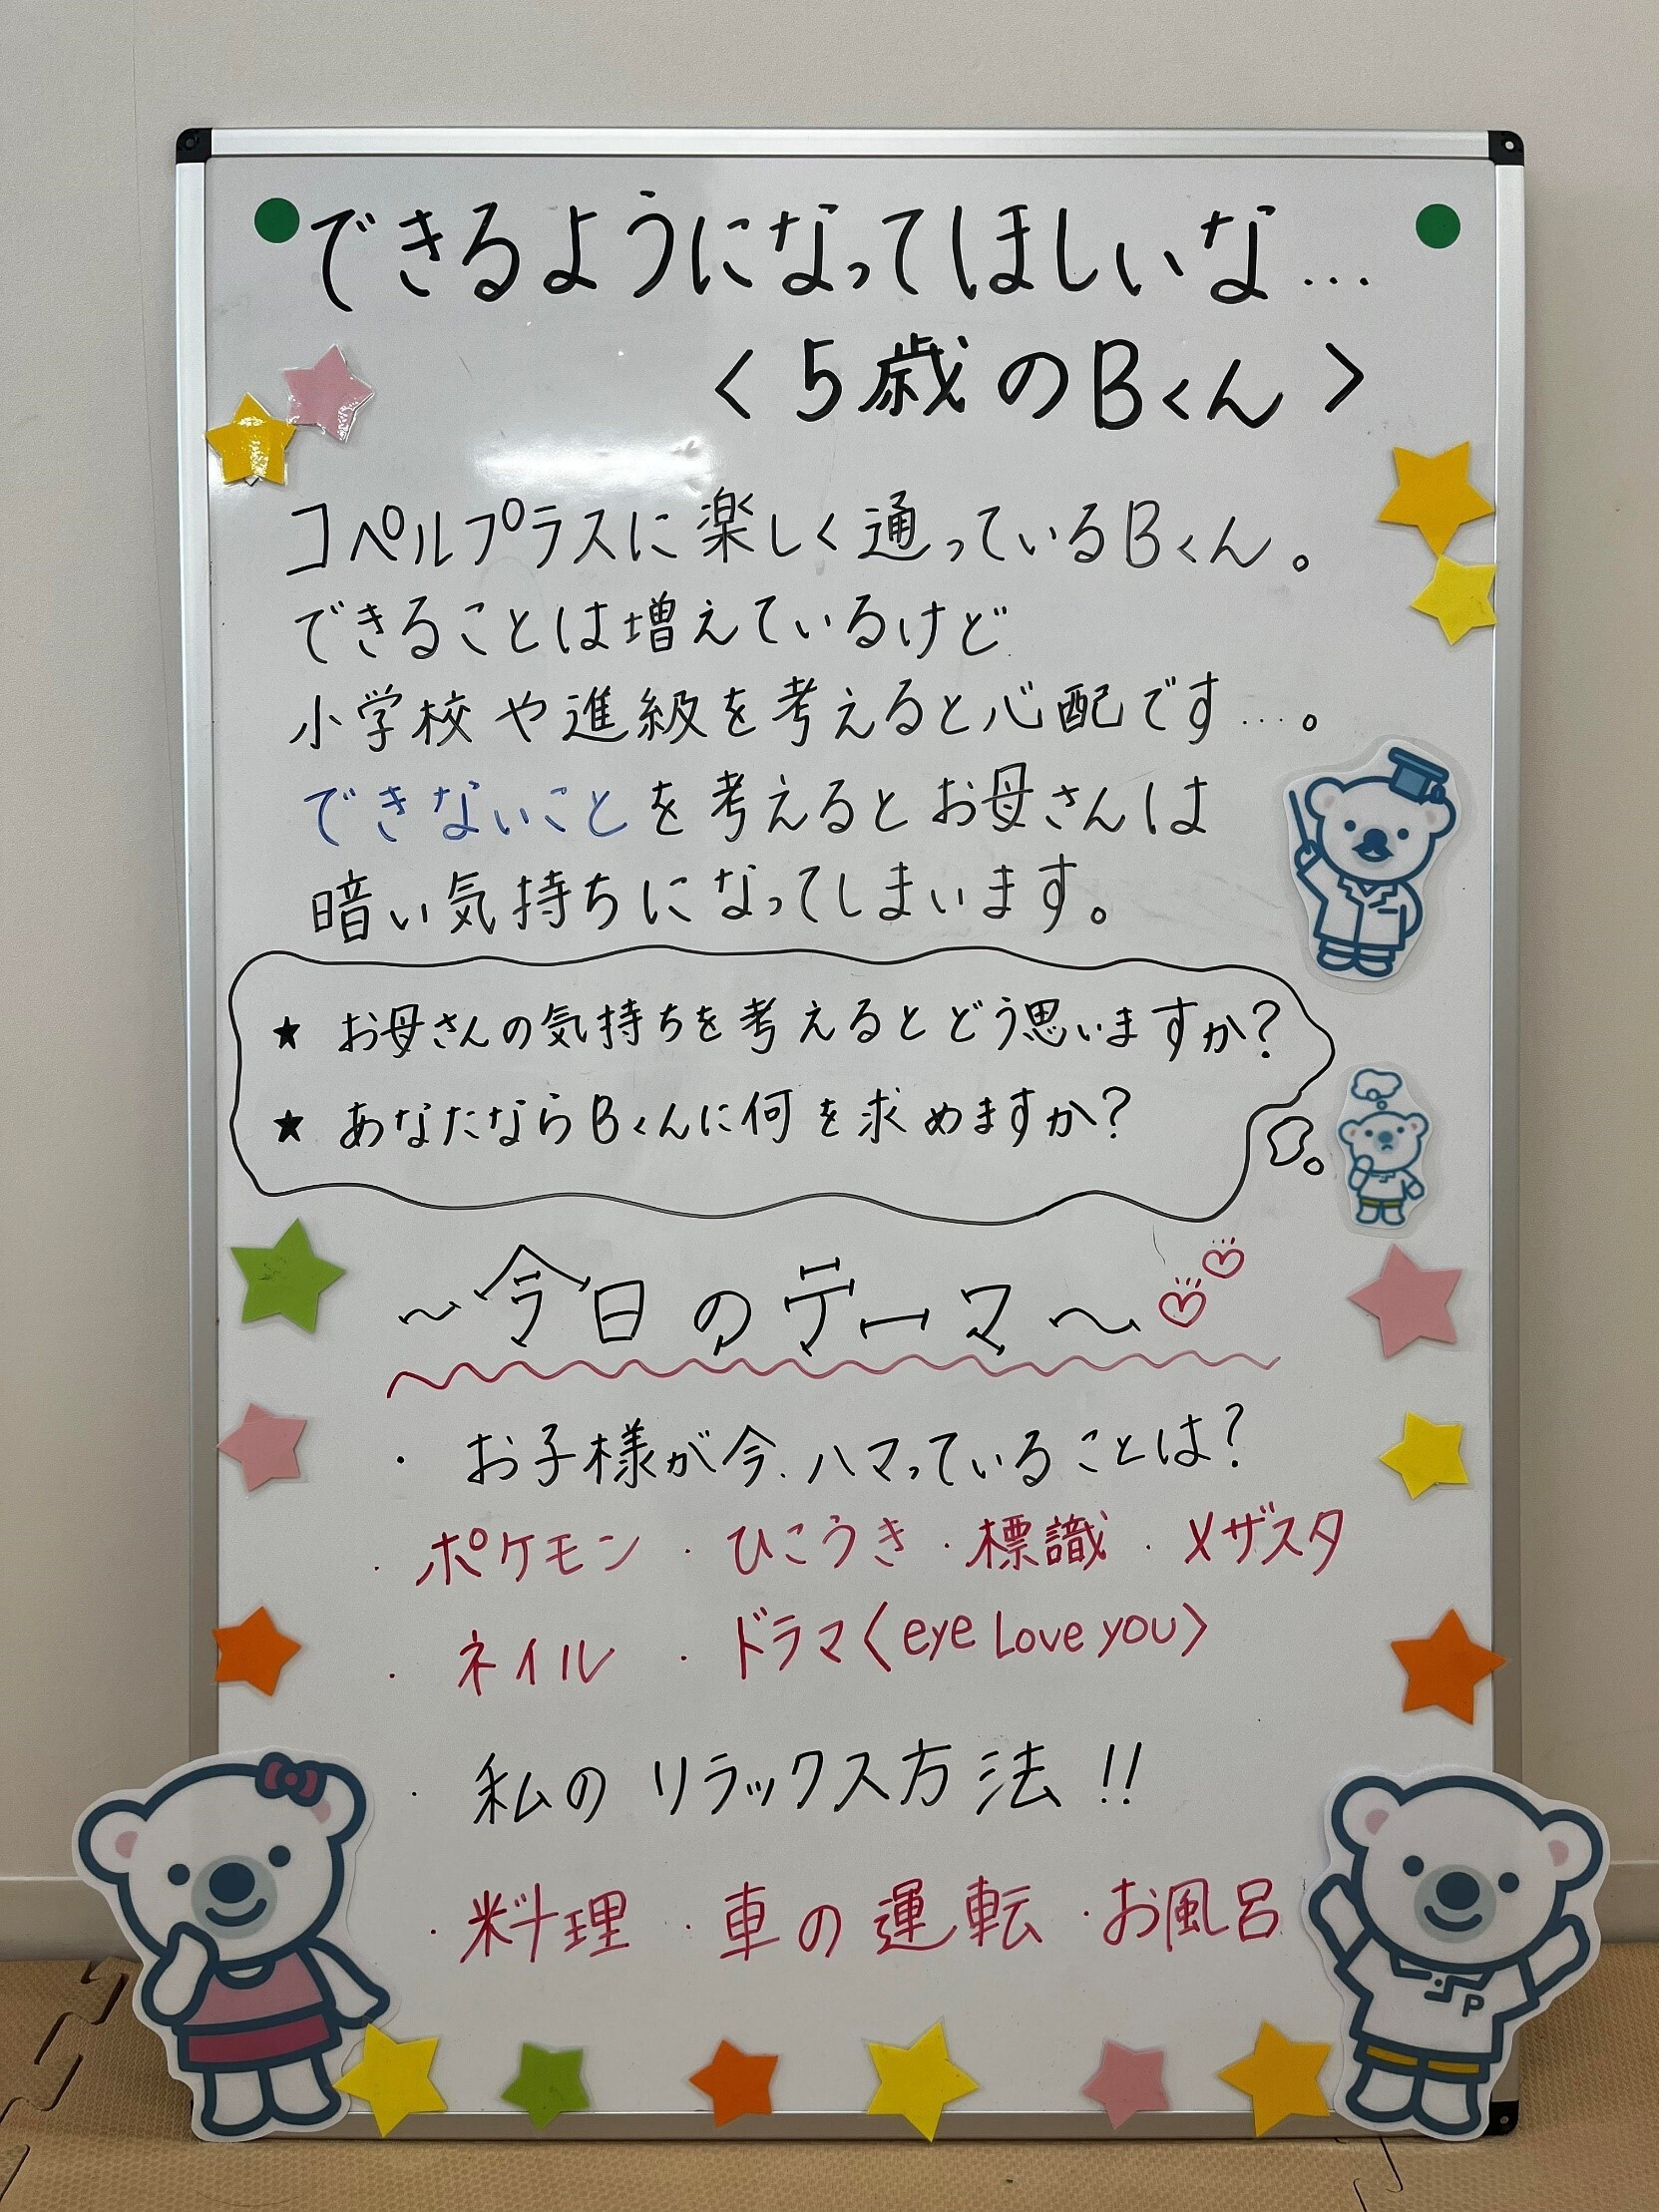 できるようになってほしいな…
〈5歳のBくん〉
コペルプラスに楽しく通っているBくん。
できることは増えているけど
小学校や進級を考えると心配です…。
できないことを考えるとお母さんは
暗い気持ちになってしまいます。
★ お母さんの気持ちを考えるとどう思いますか?
★ あなたならBくんに何を求めますか?
～今日のテーマ～♡♡
・お子様が今、ハマっていることは?
・ポケモン ・ひこうき ・標識 ・メザスタ
・ネイル ・ドラマ〈eye Love you〉
・私のリラックス方法!!
・料理 ・車の運転 ・お風呂
P